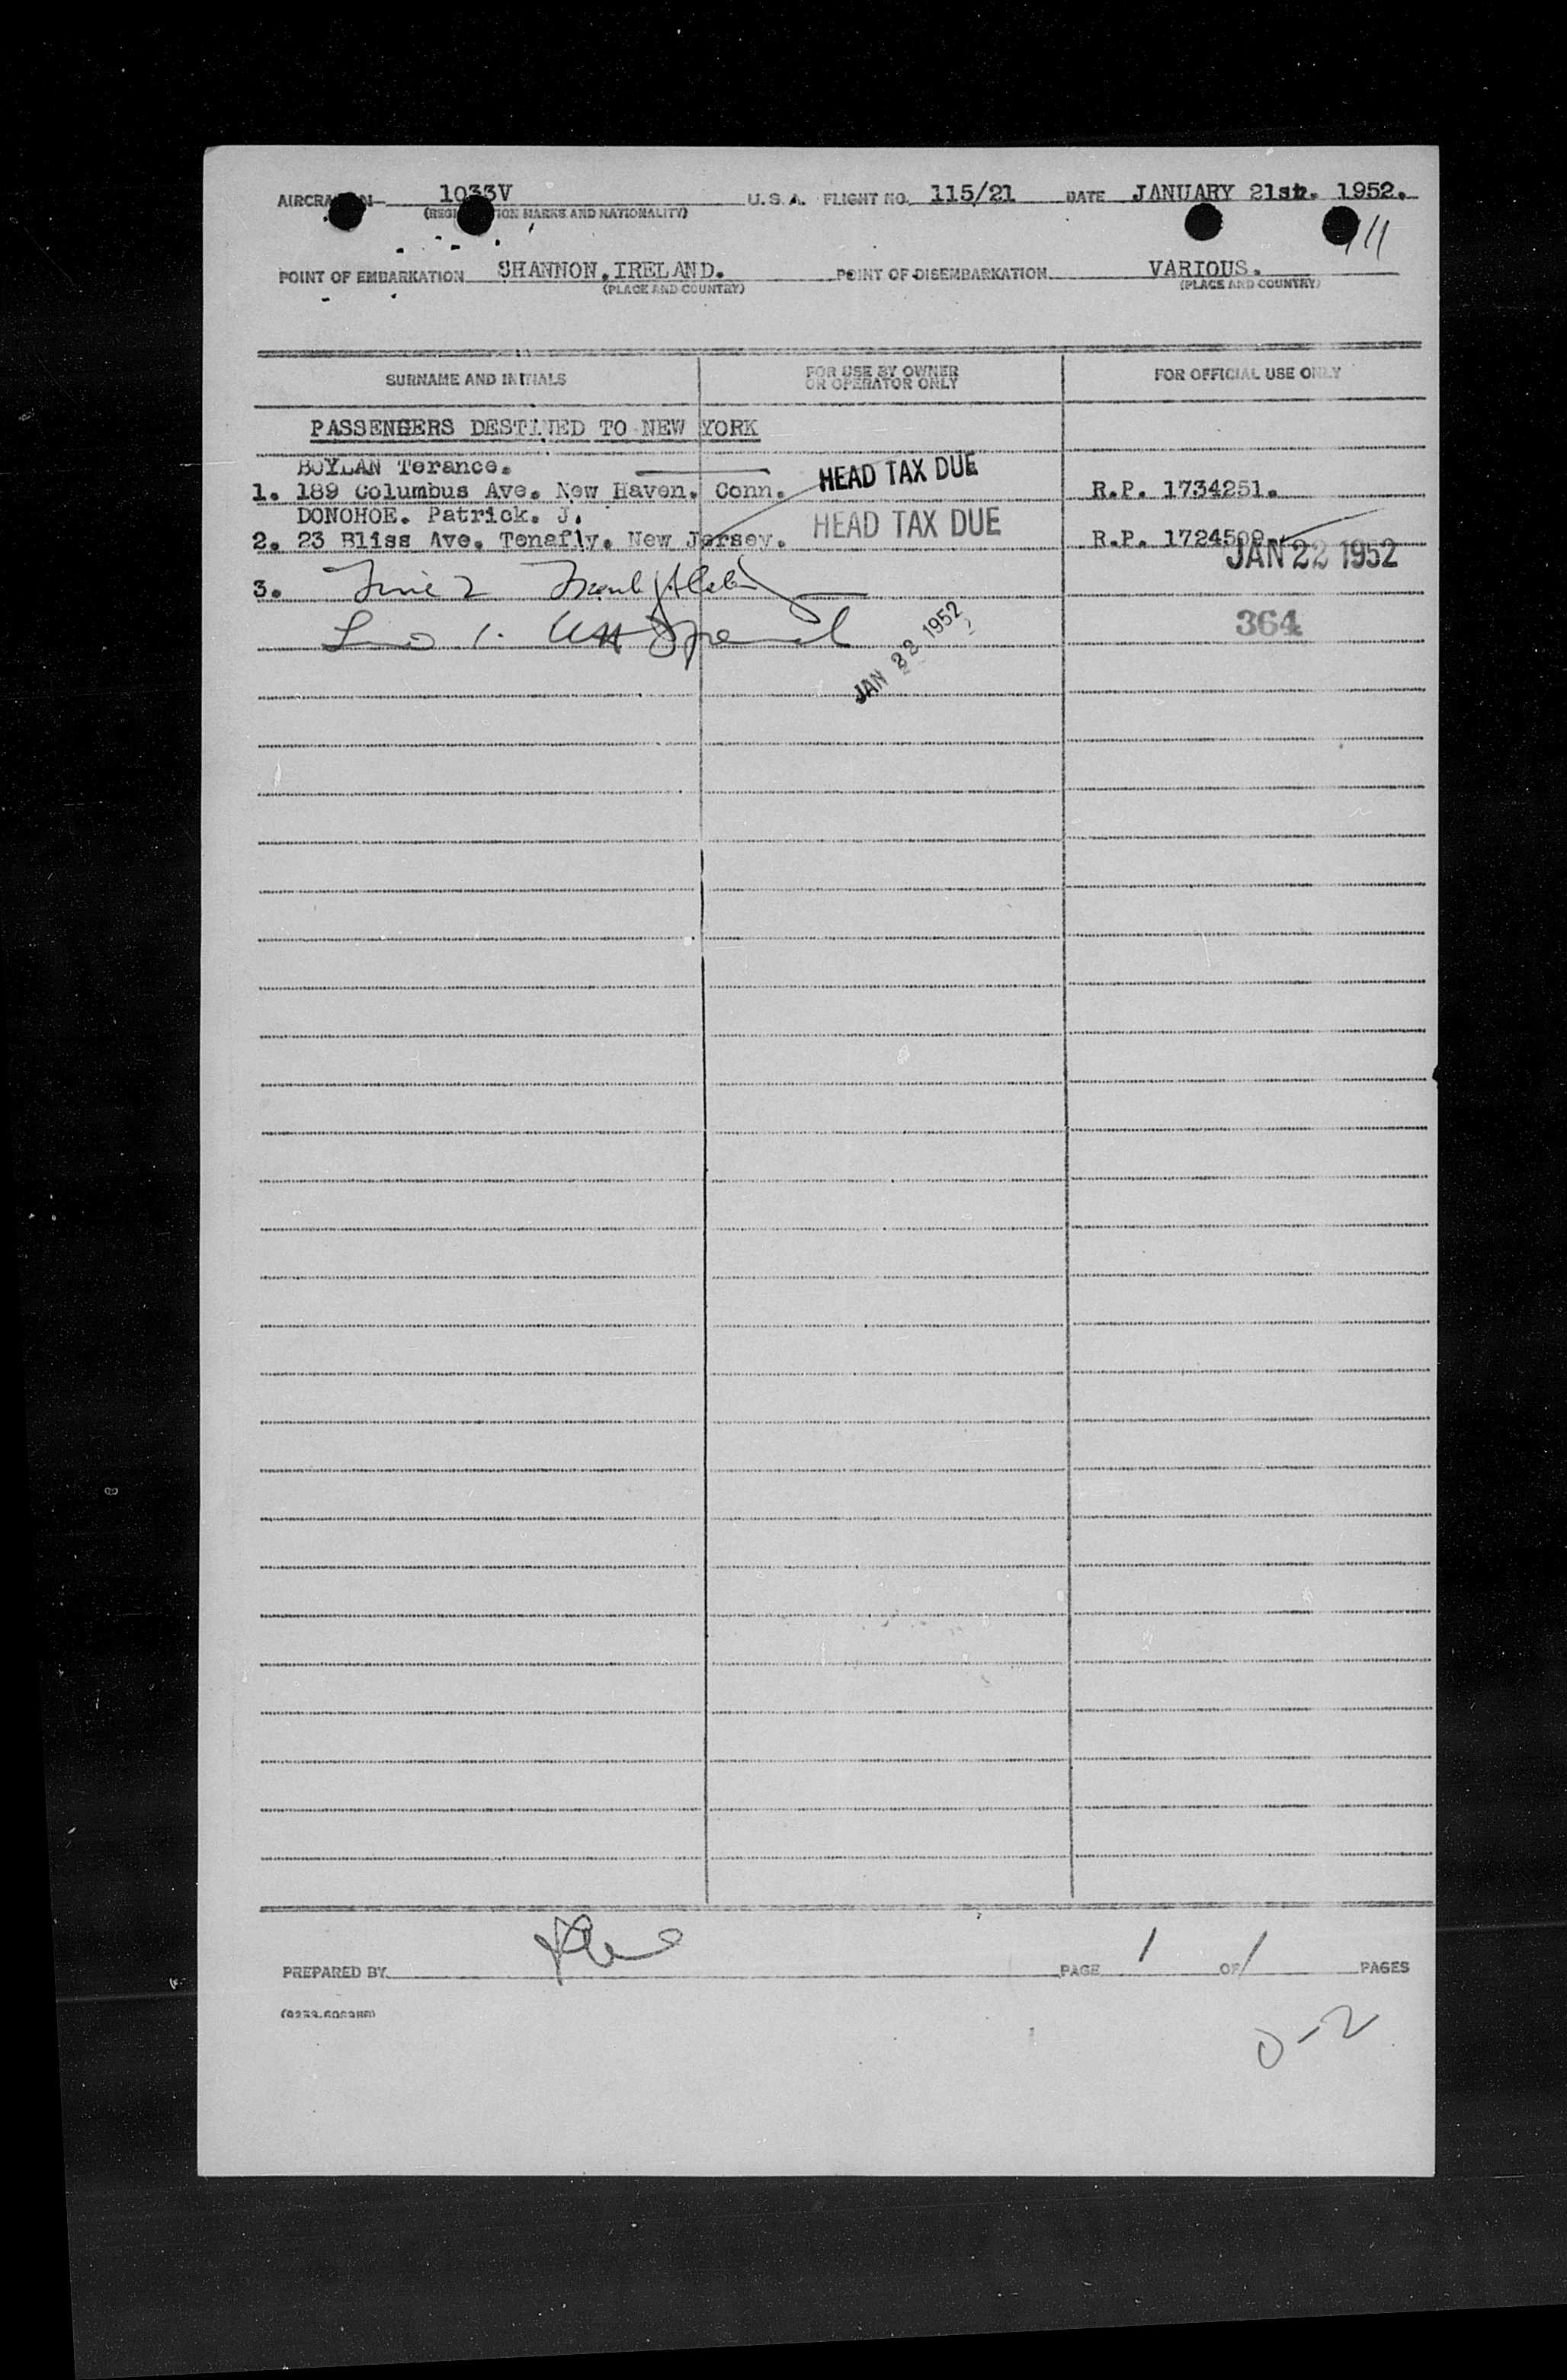 AIRCRA N 1033V U.S.A. FLIGHT NO. 115/21 DATE JANUARY 21st. 1952.
(REGI TION MARKS AND NATIONALITY)
111
POINT OF EMBARKATION SHANNON. IRELAND. POINT OF DISEMBARKATION VARIOUS.
(PLACE AND COUNTRY) (PLACE AND COUNTRY)
SURNAME AND INITIALS FOR USE BY OWNER OR OPERATOR ONLY FOR OFFICIAL USE ONLY
PASSENGERS DESTINED TO NEW YORK
BOYLAN Terance. HEAD TAX DUE
1. 189 Columbus Ave. New Haven. Conn. R.P. 1734251.
DONOHOE. Patrick. J. HEAD TAX DUE
2. 23 Bliss Ave. Tenafly. New Jersey. R.P.
JAN 22 1952
3. Line 2
364
JAN 22 1952
PREPARED BY PAGE 1 OF 1 PAGES
0-2